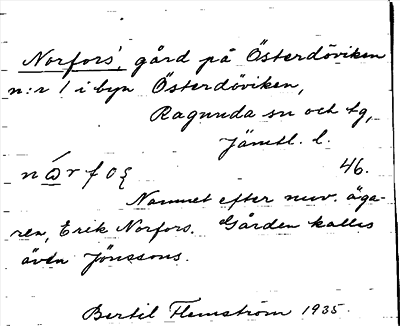 Norfors', gård på Österdöviken
n:r 1 i byn Österdöviken,
Ragunda sn och tg,
Jämtl. l.
46.
Namnet efter nuv. äga-
ren, Erik Norfors. Gården kallas
även Jönssons.
Bertil Flemström 1935.